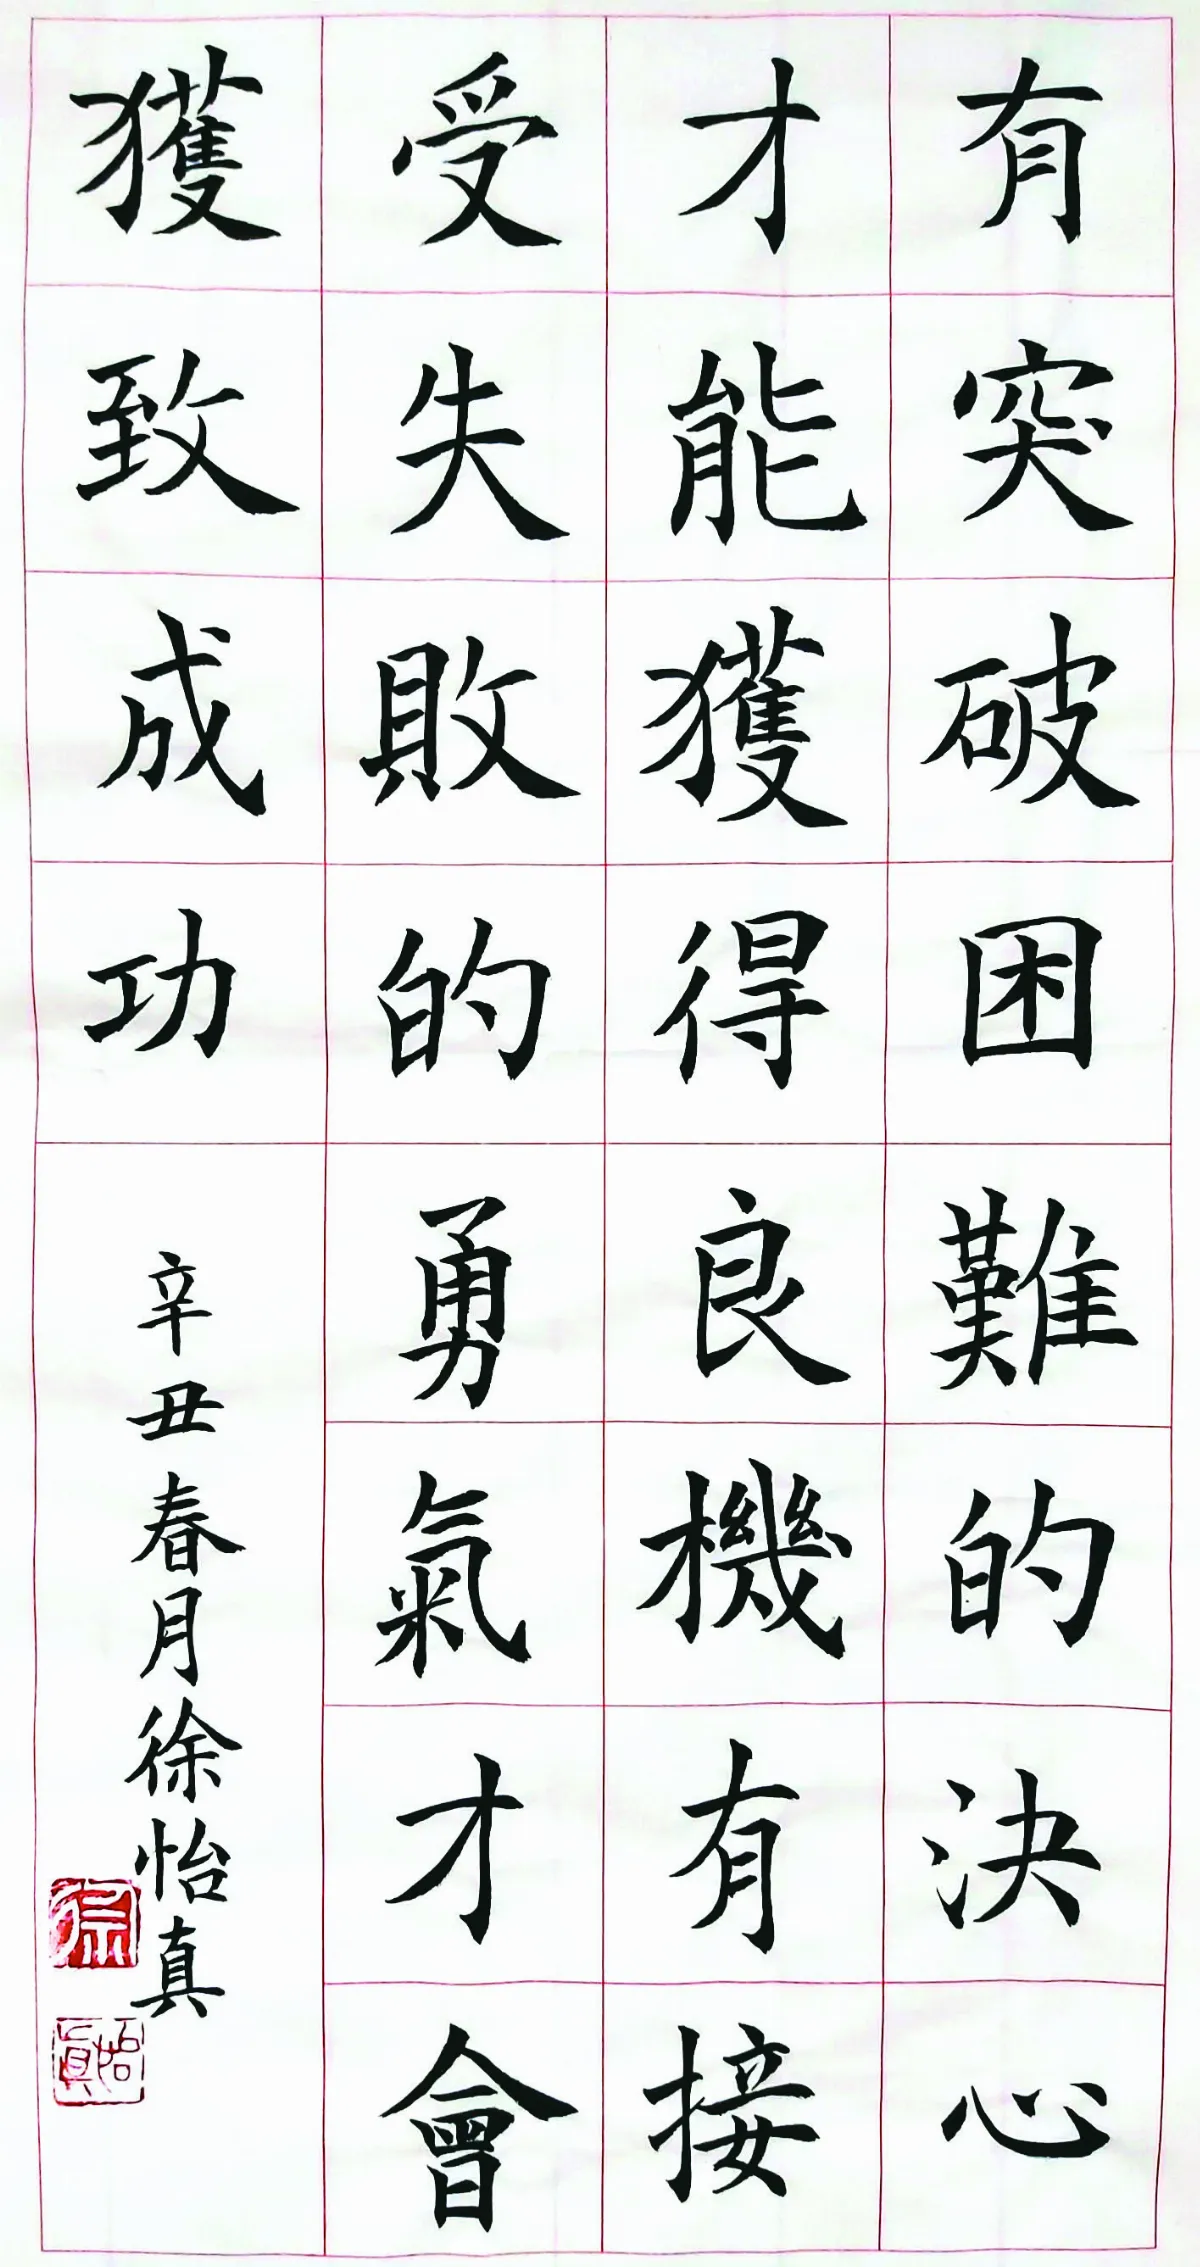 有突破困難的決心
才能獲得良機有接
受失敗的勇氣才會
獲致成功
辛丑春月徐怡真
徐
怡真